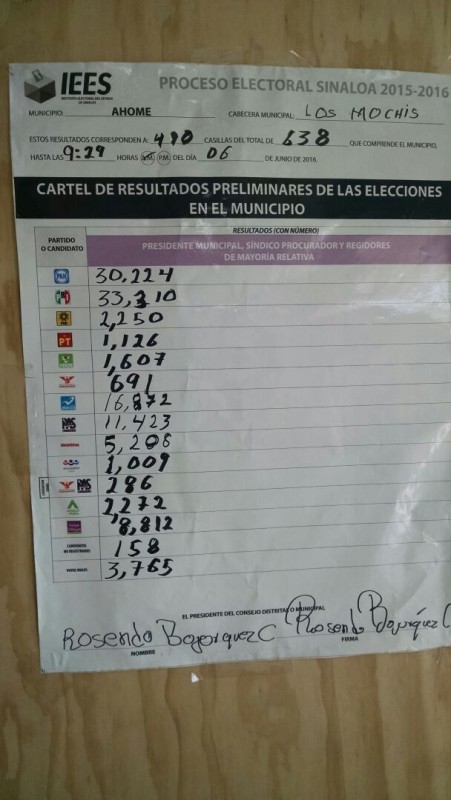 IEES
INSTITUTO ELECTORAL DEL ESTADO
DE SINALOA
PROCESO ELECTORAL SINALOA 2015-2016
MUNICIPIO: AHOME CABECERA MUNICIPAL: LOS MOCHIS
ESTOS RESULTADOS CORRESPONDEN A: 490 CASILLAS DEL TOTAL DE 638 QUE COMPRENDE EL MUNICIPIO,
HASTA LAS 9:29 HORAS A.M. P.M. DEL DÍA 06 DE JUNIO DE 2016.
CARTEL DE RESULTADOS PRELIMINARES DE LAS ELECCIONES
EN EL MUNICIPIO
PARTIDO
O CANDIDATO
RESULTADOS (CON NÚMERO)
PRESIDENTE MUNICIPAL, SÍNDICO PROCURADOR Y REGIDORES
DE MAYORÍA RELATIVA
PAN 30,224
PRI 33,310
PRD 2,250
PT 1,126
1,607
691
16,872
PAS 11,423
5,206
1,009
PAS 286
2,272
8,812
CANDIDATOS
NO REGISTRADOS 158
VOTOS NULOS 3,765
EL PRESIDENTE DEL CONSEJO DISTRITAL O MUNICIPAL
Rosendo Bojorquez C Rosendo Bojórquez C
NOMBRE FIRMA